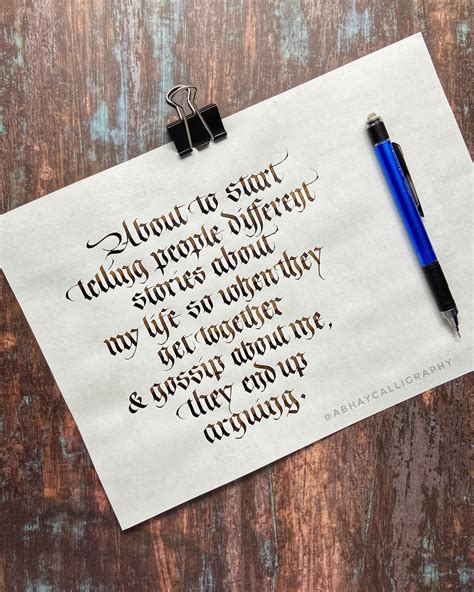 About to start
telling people different
stories about
my life so when they
get together
& gossip about me,
they end up
arguing.
@ABHAYCALLIGRAPHY